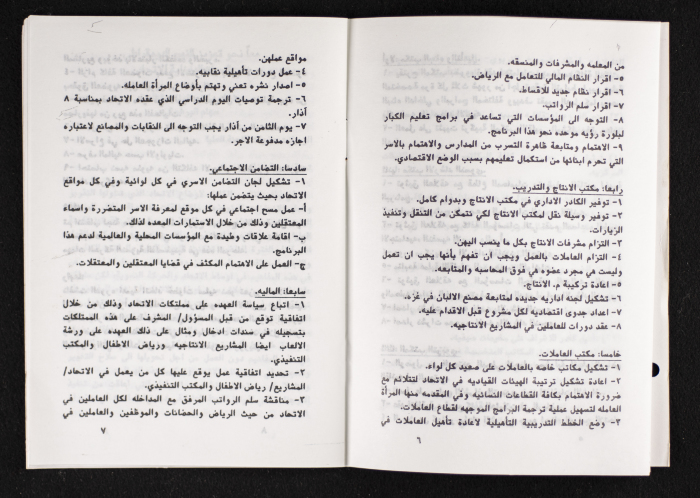 من المعلمه والمشرفات والمنسقه.
٥- اقرار النظام المالي للتعامل مع الرياض.
٦- اقرار نظام جديد للاقساط.
٧- اقرار سلم الرواتب.
٨- التوجه الى المؤسسات التي تساعد في برامج تعليم الكبار
لبلورة رؤيه موحده نحو هذا البرنامج.
٩- الاهتمام ومتابعة ظاهرة التسرب من المدارس والاهتمام بالاسر
التي تحرم ابنائها من استكمال تعليمهم بسبب الوضع الاقتصادي.
رابعا: مكتب الانتاج والتدريب.
١- توفير الكادر الاداري في مكتب الانتاج وبدوام كامل.
٢- توفير وسيلة نقل لمكتب الانتاج لكي نتمكن من التنقل وتنفيذ
الزيارات.
٣- التزام مشرفات الانتاج بكل ما ينسب اليهن.
٤- التزام العاملات بالعمل ويجب ان تفهم بأنها يجب ان تعمل
وليست هي مجرد عضوه هي فوق المحاسبه والمتابعه.
٥- اعادة تركيبة م. الانتاج.
٦- تشكيل لجنه اداريه جديده لمتابعة مصنع الالبان في غزه.
٧- اعداد جدوى اقتصاديه لكل مشروع قبل الاقدام عليه.
٨- عقد دورات للعاملين في المشاريع الانتاجيه.
خامسا: مكتب العاملات.
١- تشكيل مكاتب خاصه بالعاملات على صعيد كل لواء.
٢- اعادة تشكيل ترتيبة الهيئات القياديه في الاتحاد لتتلائم مع
ضرورة الاهتمام بكافة القطاعات النسائيه وفي المقدمه منها المرأة
العامله لتسهيل عملية ترجمة البرامج الموجهه لقطاع العاملات.
٣- وضع الخطط التدريبية التأهيلية لاعادة تأهيل العاملات في
٦
مواقع عملهن.
٤- عمل دورات تأهيلية نقابيه.
٥- اصدار نشره تعني وتهتم بأوضاع المرأة العامله.
٦- ترجمة توصيات اليوم الدراسي الذي عقده الاتحاد بمناسبة ٨
آذار.
٧- يوم الثامن من آذار يجب التوجه الى النقابات والمصانع لاعتباره
اجازه مدفوعة الاجر.
سادسا: التضامن الاجتماعي.
١- تشكيل لجان التضامن الاسري في كل لوائية وفي كل مواقع
الاتحاد بحيث يتضمن عملها:
أ- عمل مسح اجتماعي في كل موقع لمعرفة الاسر المتضررة واسماء
المعتقلين وذلك من خلال الاستمارات المعده لذلك.
ب- اقامة علاقات وطيدة مع المؤسسات المحلية والعالمية لدعم هذا
البرنامج.
ج- العمل على الاهتمام المكثف في قضايا المعتقلين والمعتقلات.
سابعا: الماليه.
١- اتباع سياسة العهده على ممتلكات الاتحاد وذلك من خلال
اتفاقية توقع من قبل المسؤول/ المشرف على هذه الممتلكات
بتسجيله في سندات ادخال ومثال على ذلك العهده على ورشة
الالعاب ايضا المشاريع الانتاجيه ورياض الاطفال والمكتب
التنفيذي.
٢- تحديد اتفاقية عمل يوقع عليها كل من يعمل في الاتحاد/
المشاريع/ رياض الاطفال والمكتب التنفيذي.
٣- مناقشة سلم الرواتب المرفق مع المداخله لكل العاملين في
الاتحاد من حيث الرياض والحضانات والموظفين والعاملين في
٧